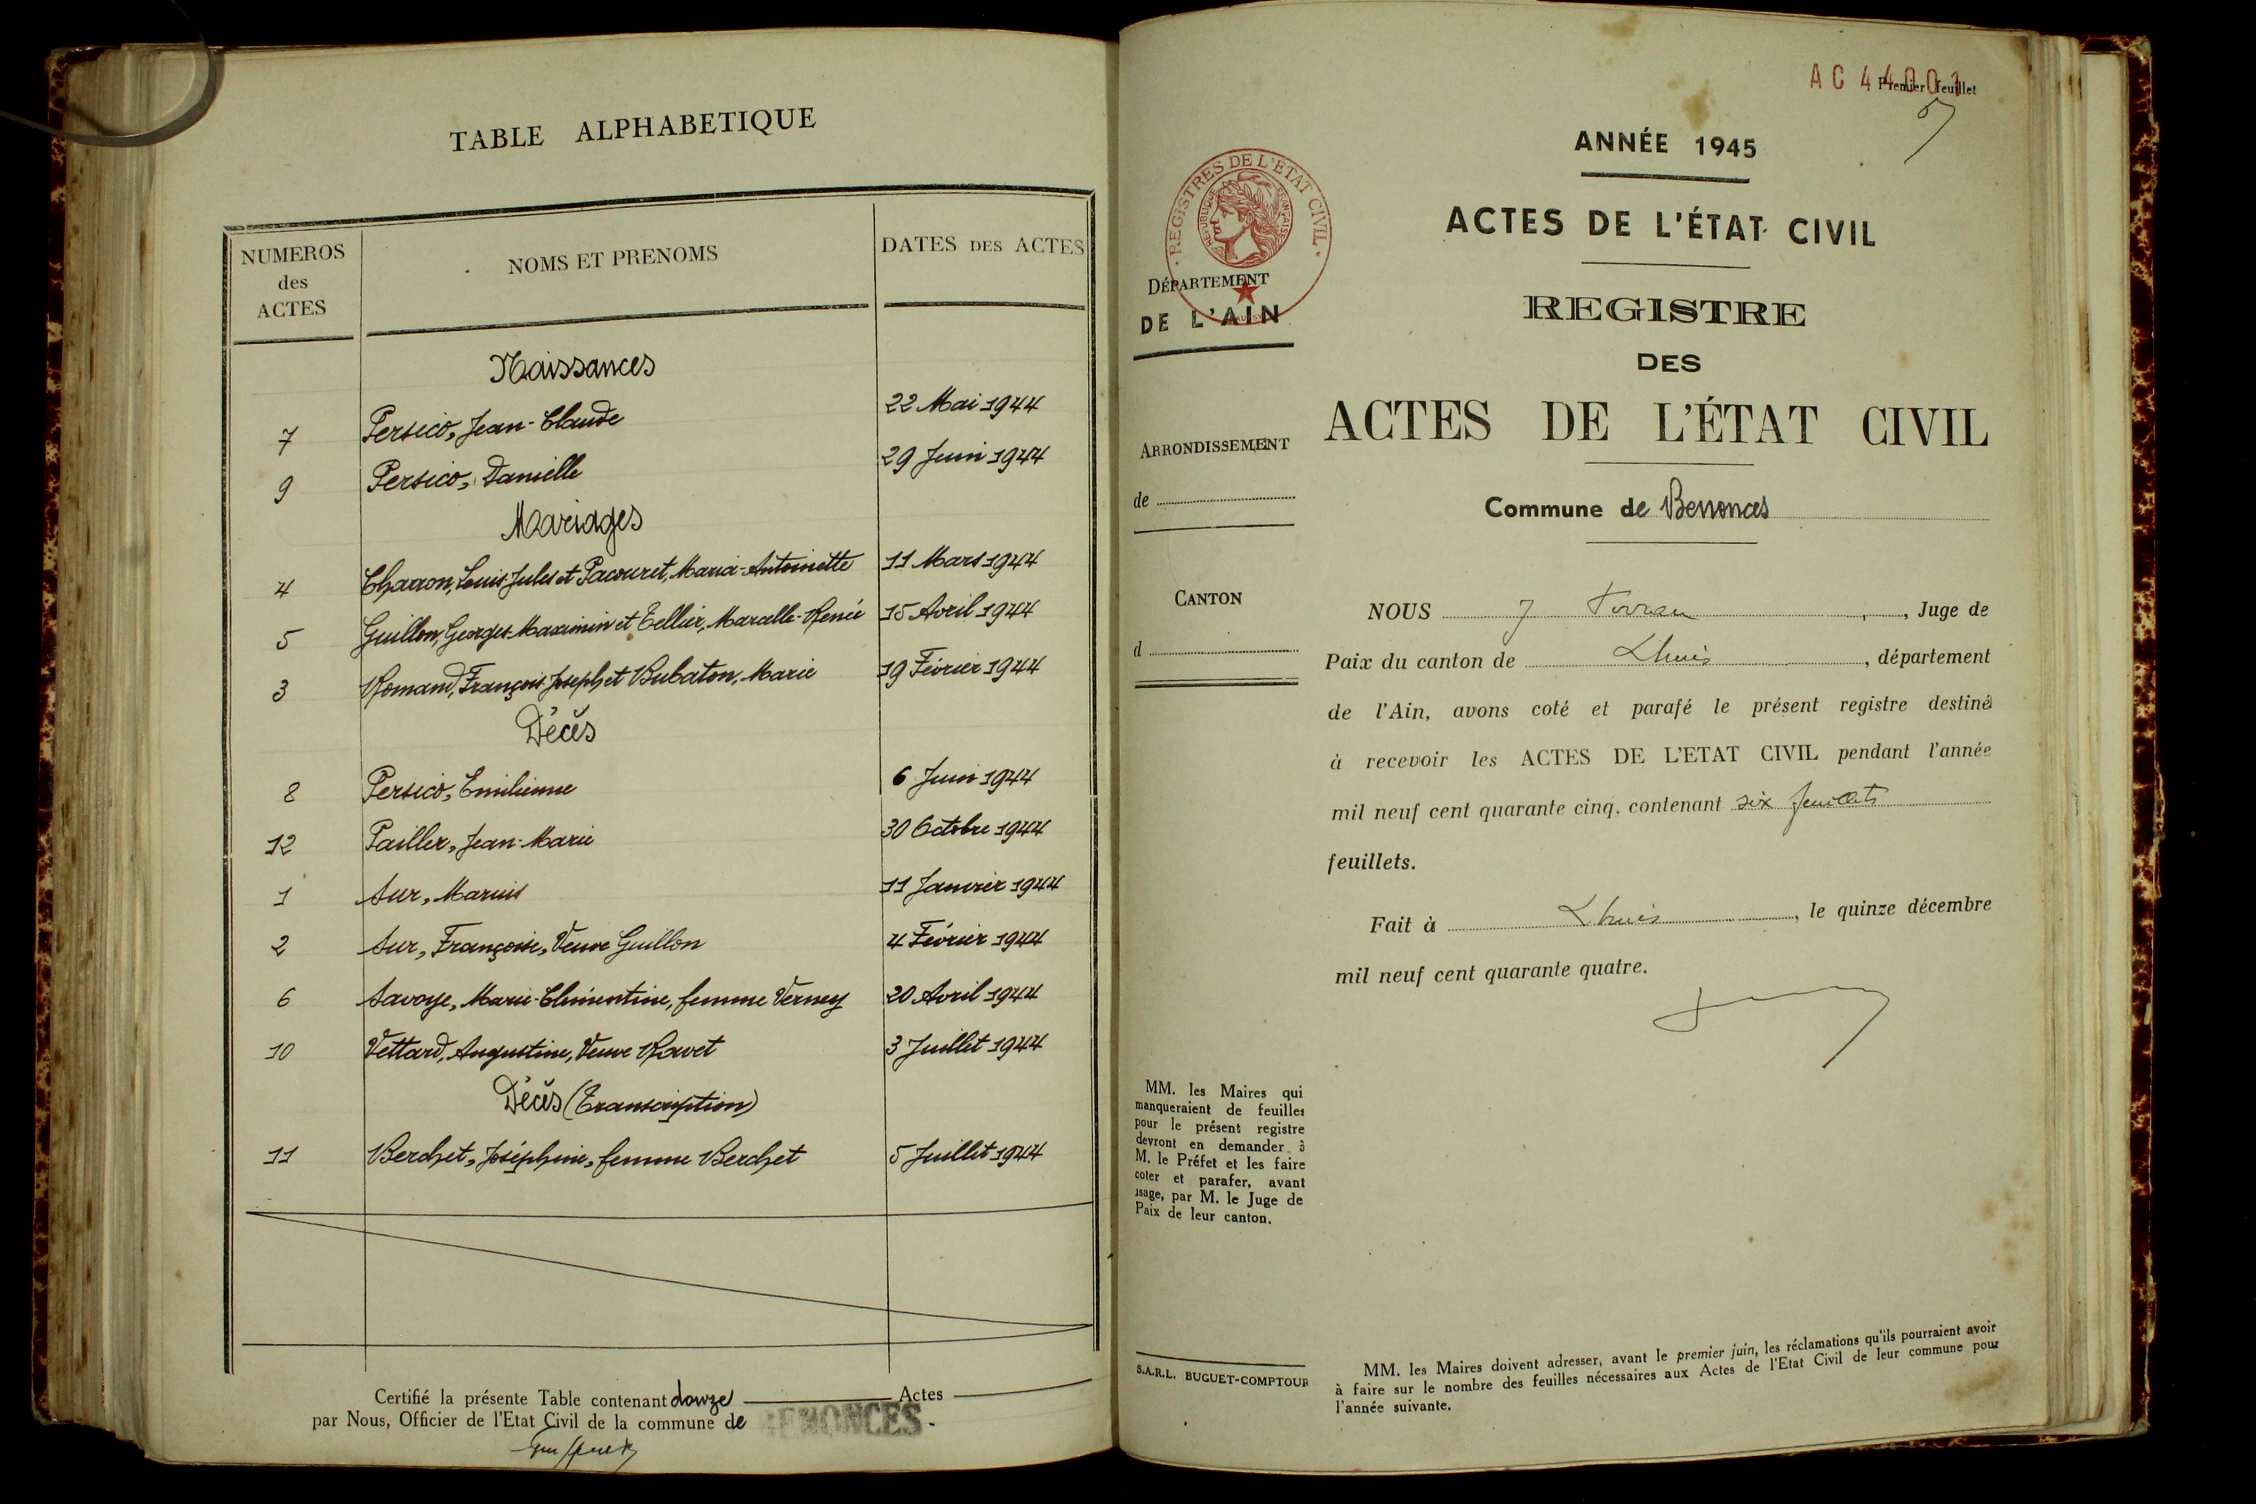 TABLE ALPHABETIQUE
NUMEROS des ACTES NOMS ET PRENOMS DATES DES ACTES
Naissances
7 Persico, Jean-Claude 22 Mai 1944
9 Persico, Danielle 29 Juin 1944
Mariages
4 Charron, Louis Jules et Pacouret, Maria-Antoinette 11 Mars 1944
5 Guillon, Georges-Maximin et Tellier, Marcelle-Renée 15 Avril 1944
3 Romand, François Joseph et Bubaton, Marie 19 Février 1944
Décès
8 Persico, Emilienne 6 Juin 1944
12 Pailler, Jean-Marie 30 Octobre 1944
1 Sur, Marius 11 Janvier 1944
2 Sur, Françoise, Veuve Guillon 4 Février 1944
6 Savoye, Marie-Clémentine, femme Verney 20 Avril 1944
10 Vettard, Augustine, Veuve Ravet 3 Juillet 1944
Décès (Transcription)
11 Berchet, Joséphine, femme Berchet 5 Juillet 1944
Certifié la présente Table contenant douze Actes
par Nous, Officier de l'Etat Civil de la commune de BENONCES.
AC 44001
Premier feuillet
ANNÉE 1945
ACTES DE L'ÉTAT CIVIL
REGISTRES DE L'ETAT CIVIL
REPUBLIQUE FRANÇAISE
DÉPARTEMENT
DE L'AIN
REGISTRE
DES
ACTES DE L'ÉTAT CIVIL
ARRONDISSEMENT
de
Commune de Benonces
CANTON
d
NOUS J , Juge de
Paix du canton de Lhuis, département
de l'Ain, avons coté et parafé le présent registre destiné
à recevoir les ACTES DE L'ETAT CIVIL pendant l'année
mil neuf cent quarante cinq, contenant six feuillets
feuillets.
Fait à Lhuis, le quinze décembre
mil neuf cent quarante quatre.
MM. les Maires qui
manqueraient de feuilles
pour le présent registre
devront en demander à
M. le Préfet et les faire
coter et parafer, avant
usage, par M. le Juge de
Paix de leur canton.
S.A.R.L. BUGUET-COMPTOUR
MM. les Maires doivent adresser, avant le premier juin, les réclamations qu'ils pourraient avoir
à faire sur le nombre des feuilles nécessaires aux Actes de l'Etat Civil de leur commune pour
l'année suivante.